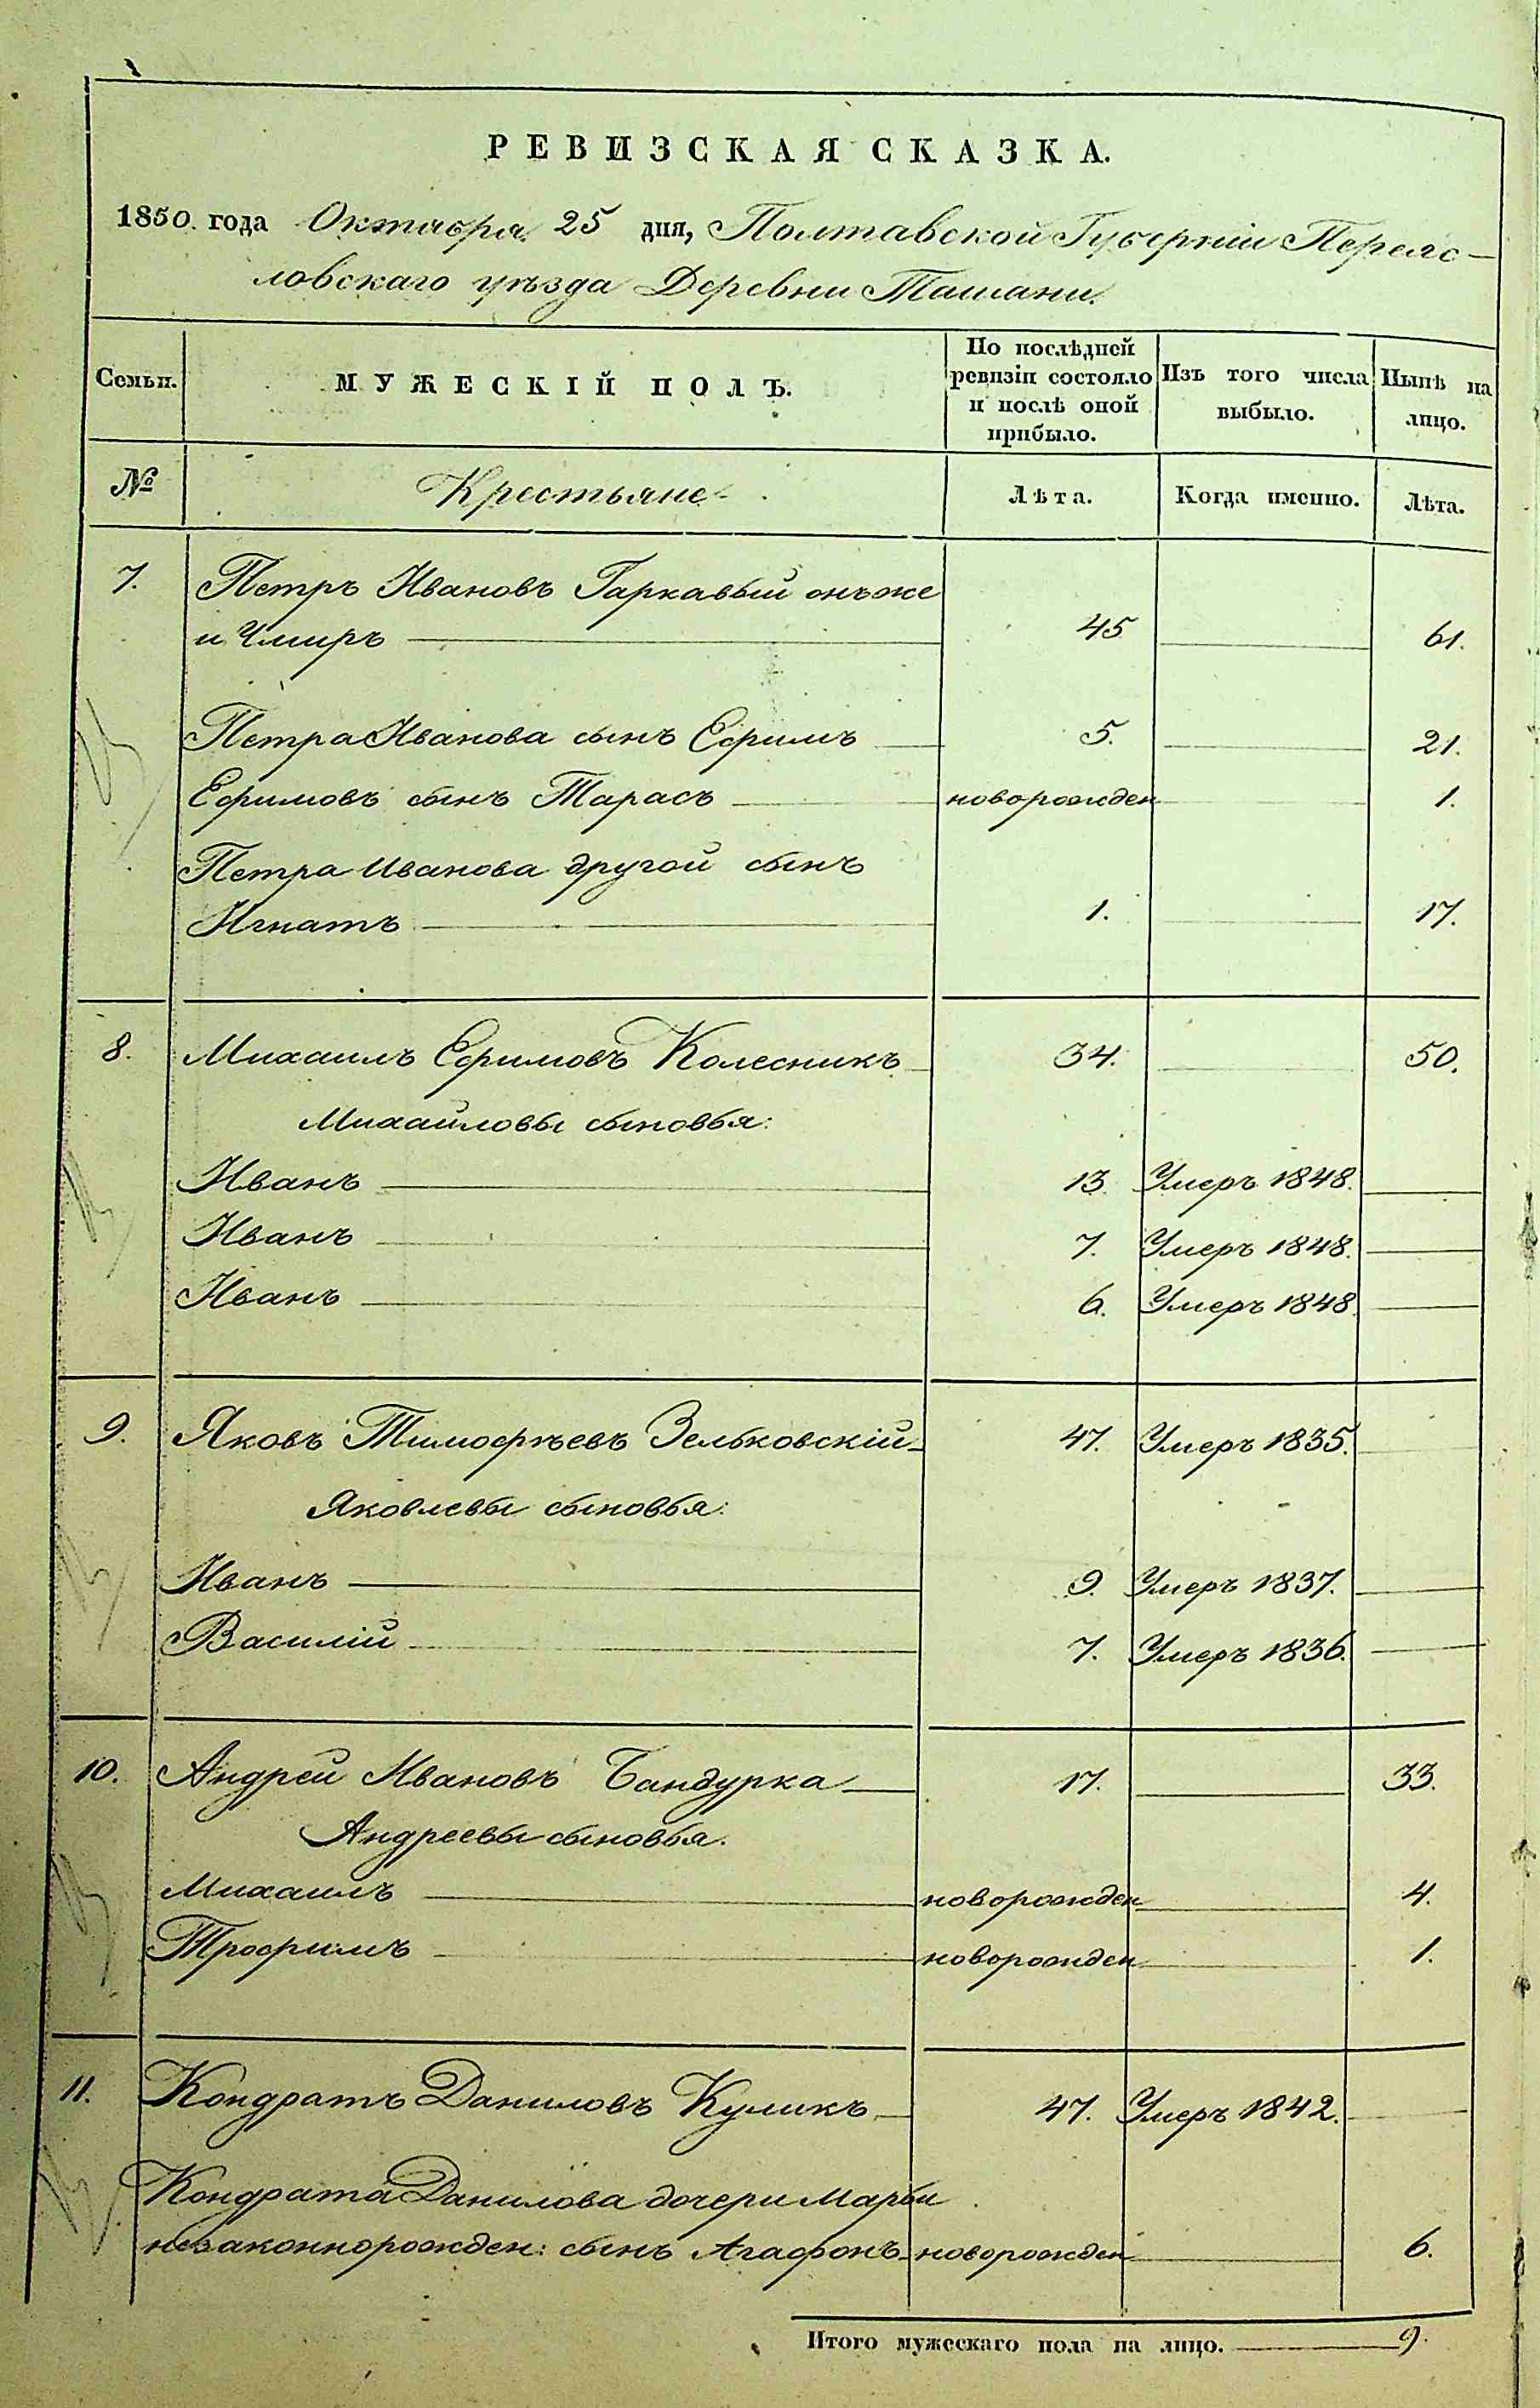 РЕВИЗСКАЯ СКАЗКА.
1850. года Октября 25 дня, Полтавской Губерніи Переяс-
ловскаго уѣзда Деревни Ташани.
Семьи.
МУЖЕСКІЙ ПОЛЪ.
По послѣдней
ревизіи состояло
и послѣ оной
прибыло.
Изъ того числа
выбыло.
Нынѣ на
лицо.
№ Крестьяне Лѣта. Когда именно. Лѣта.
7. Петръ Ивановъ Гаркавый онъ же
и Чмиръ 45 61.
Петра Иванова сынъ Ефимъ 5. 21.
Ефимовъ сынъ Тарасъ новорожден 1.
Петра Иванова другой сынъ
Игнатъ 1. 17.
8. Михаилъ Ефимовъ Колесникъ 34. 50.
Михайловы сыновья:
Иванъ 13. Умеръ 1848.
Иванъ 7. Умеръ 1848.
Иванъ 6. Умеръ 1848.
9. Яковъ Тимофѣевъ Зельковскій 47. Умеръ 1835.
Яковлевы сыновья:
Иванъ 9. Умеръ 1837.
Василій 7. Умеръ 1836.
10. Андрей Ивановъ Бандурка 17. 33.
Андреевы сыновья.
Михаилъ новорожден 4.
Трофимъ новорожден 1.
11. Кондратъ Даниловъ Куликъ 47. Умеръ 1842.
Кондрата Данилова дочери Марьи
незаконнорожден: сынъ Агафонъ новорожден 6.
Итого мужескаго пола на лицо. 9.